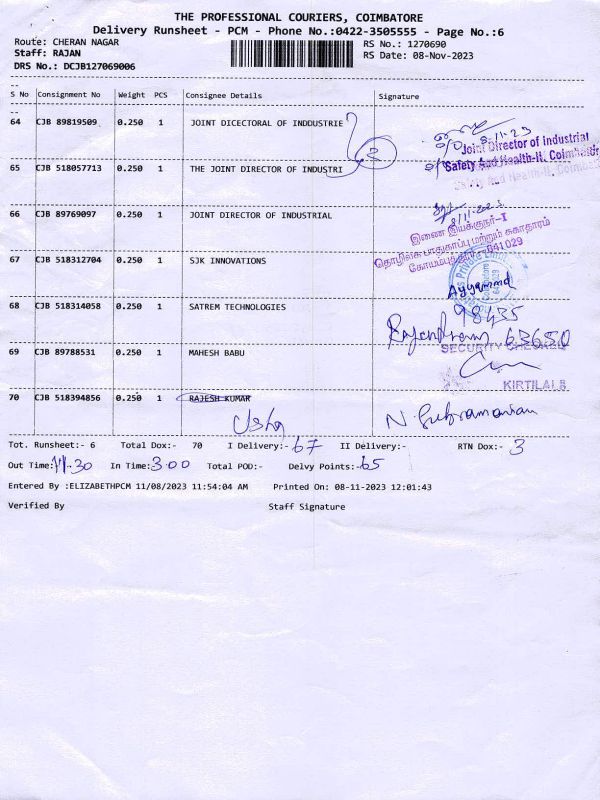 THE PROFESSIONAL COURIERS, COIMBATORE
Delivery Runsheet - PCM - Phone No.:0422-3505555 - Page No.:6
Route: CHERAN NAGAR RS No.: 1270690
Staff: RAJAN RS Date: 08-Nov-2023
DRS No.: DCJB127069006
S No Consignment No Weight PCS Consignee Details Signature
64 CJB 89819509 0.250 1 JOINT DICECTORAL OF INDDUSTRIE
8-11-23
Joint Director of Industrial
Safety And Health-II, Coimbatore
2
65 CJB 518057713 0.250 1 THE JOINT DIRECTOR OF INDUSTRI
66 CJB 89769097 0.250 1 JOINT DIRECTOR OF INDUSTRIAL
இணை இயக்குநர்-I
தொழிலக பாதுகாப்பு மற்றும் சுகாதாரம்
641029
67 CJB 518312704 0.250 1 SJK INNOVATIONS
68 CJB 518314058 0.250 1 SATREM TECHNOLOGIES
98435
63650
69 CJB 89788531 0.250 1 MAHESH BABU
SECURITY
KIRTILALS
70 CJB 518394856 0.250 1 RAJESH KUMAR
Usha
N. Subramanian
Tot. Runsheet:- 6 Total Dox:- 70 I Delivery:- 67 II Delivery:- RTN Dox:- 3
Out Time:11.30 In Time:3.00 Total POD:- Delvy Points:-65
Entered By :ELIZABETHPCM 11/08/2023 11:54:04 AM Printed On: 08-11-2023 12:01:43
Verified By Staff Signature